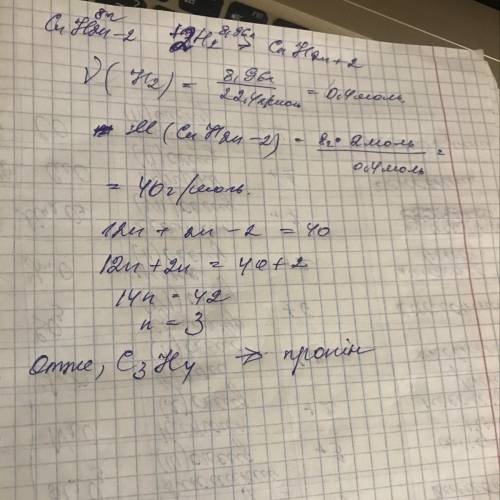 8г 8,96л
CnH2n-2 + 2H2 → CnH2n+2
ν(H2) = 8,96л / 22,4л/моль = 0,4моль.
M(CnH2n-2) = 8г · 2моль / 0,4моль =
= 40г/моль.
12n + 2n - 2 = 40
12n + 2n = 40+2
14n = 42
n = 3
Отже, C3H4 → пропін